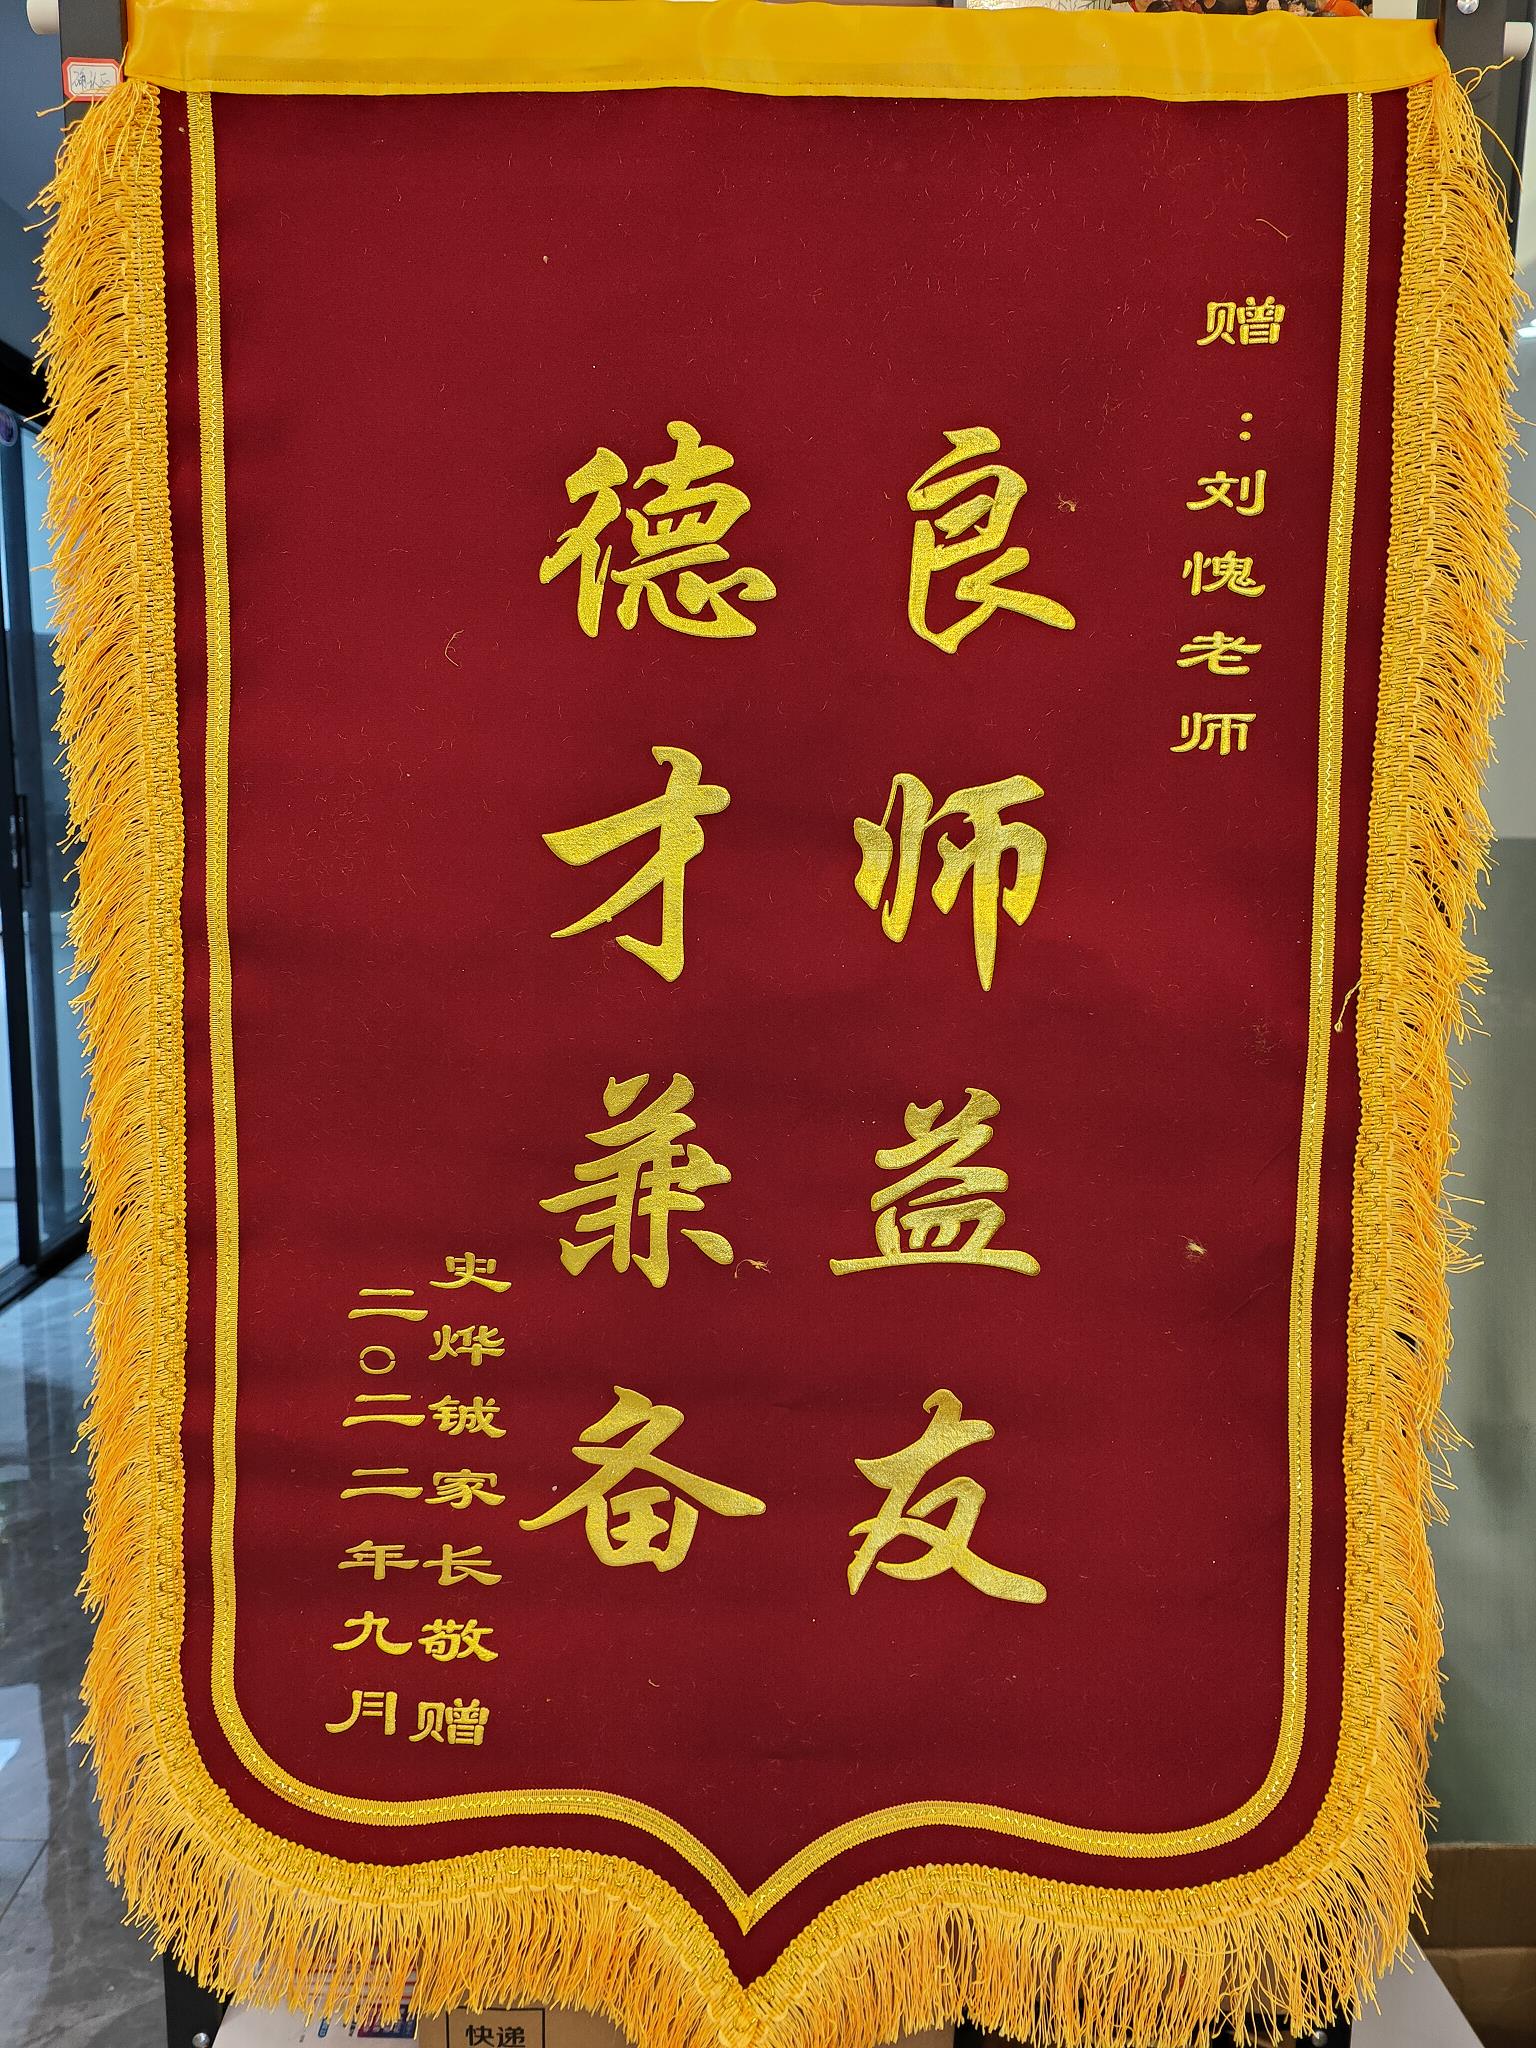 赠：刘愧老师
良师益友
德才兼备
史烨铖家长敬赠
二〇二二年九月
快递